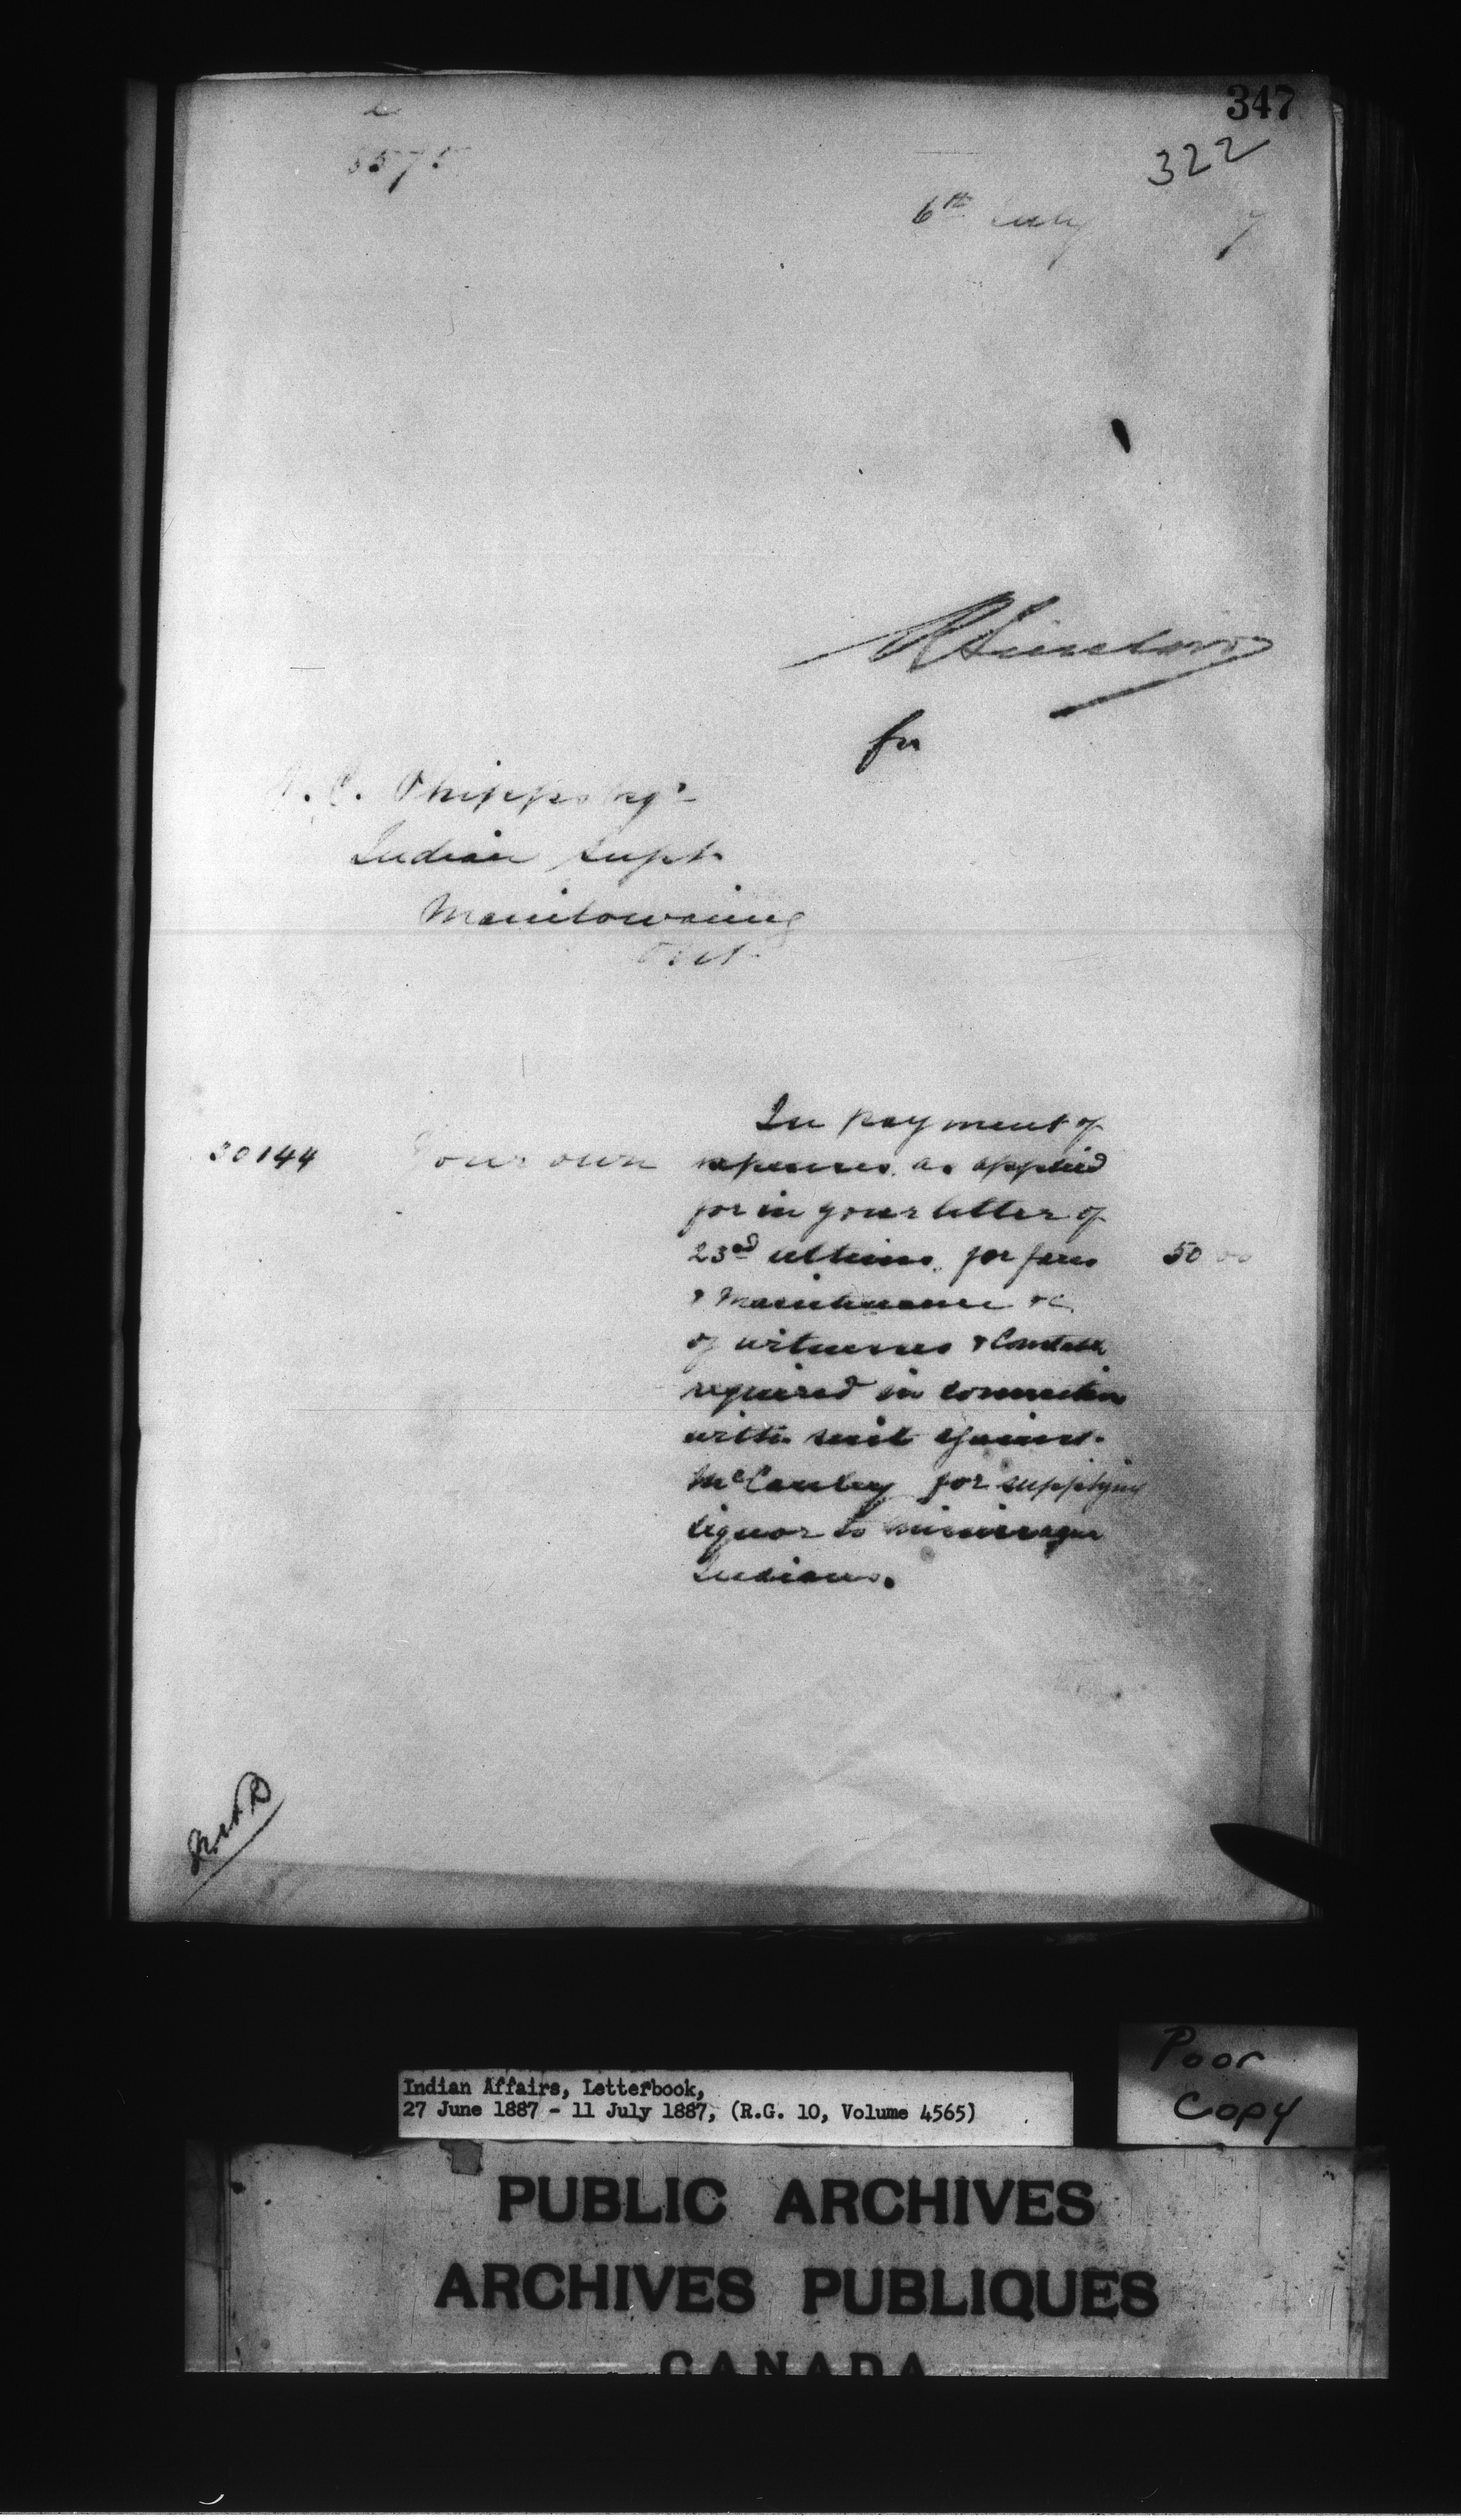 347
322
6th July 7
R Sinclair
for
J. C. Phipps Esqr
Indian Supt.
Manitowaning
Ont.
In payment of
30144 Your own expenses as applied
for in your letter of
23rd ultimo, for fares 50 00
& Maintenance &c.
of witnesses & Constable
required in connection
with suit against
McCauley for supplying
liquor to
Indians.
Poor
Copy
Indian Affairs, Letterbook,
27 June 1887 - 11 July 1887, (R.G. 10, Volume 4565)
PUBLIC ARCHIVES
ARCHIVES PUBLIQUES
CANADA